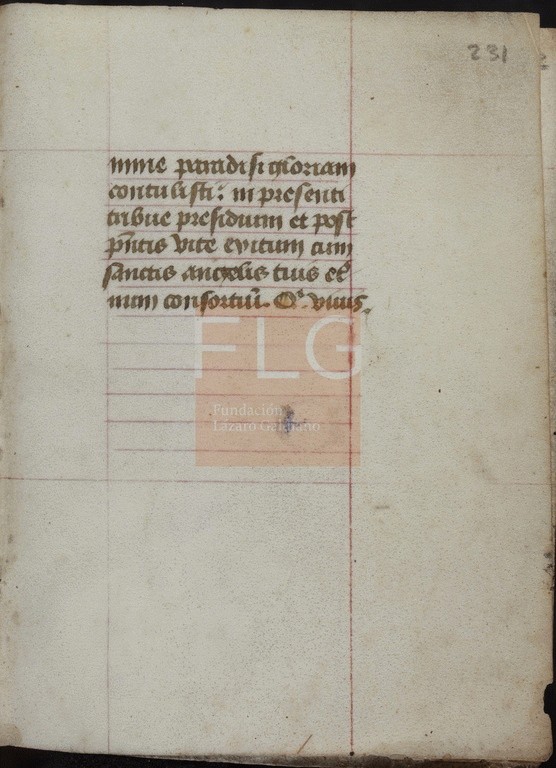 231
mine paradisi gloriam
contulisti: in presenti
tribue presidium et post
pñtis vite exitum cum
sanctis angelis tuis et̾
num consortiũ. Qͥ. viuis.
FLG
Fundación
Lázaro Galdiano